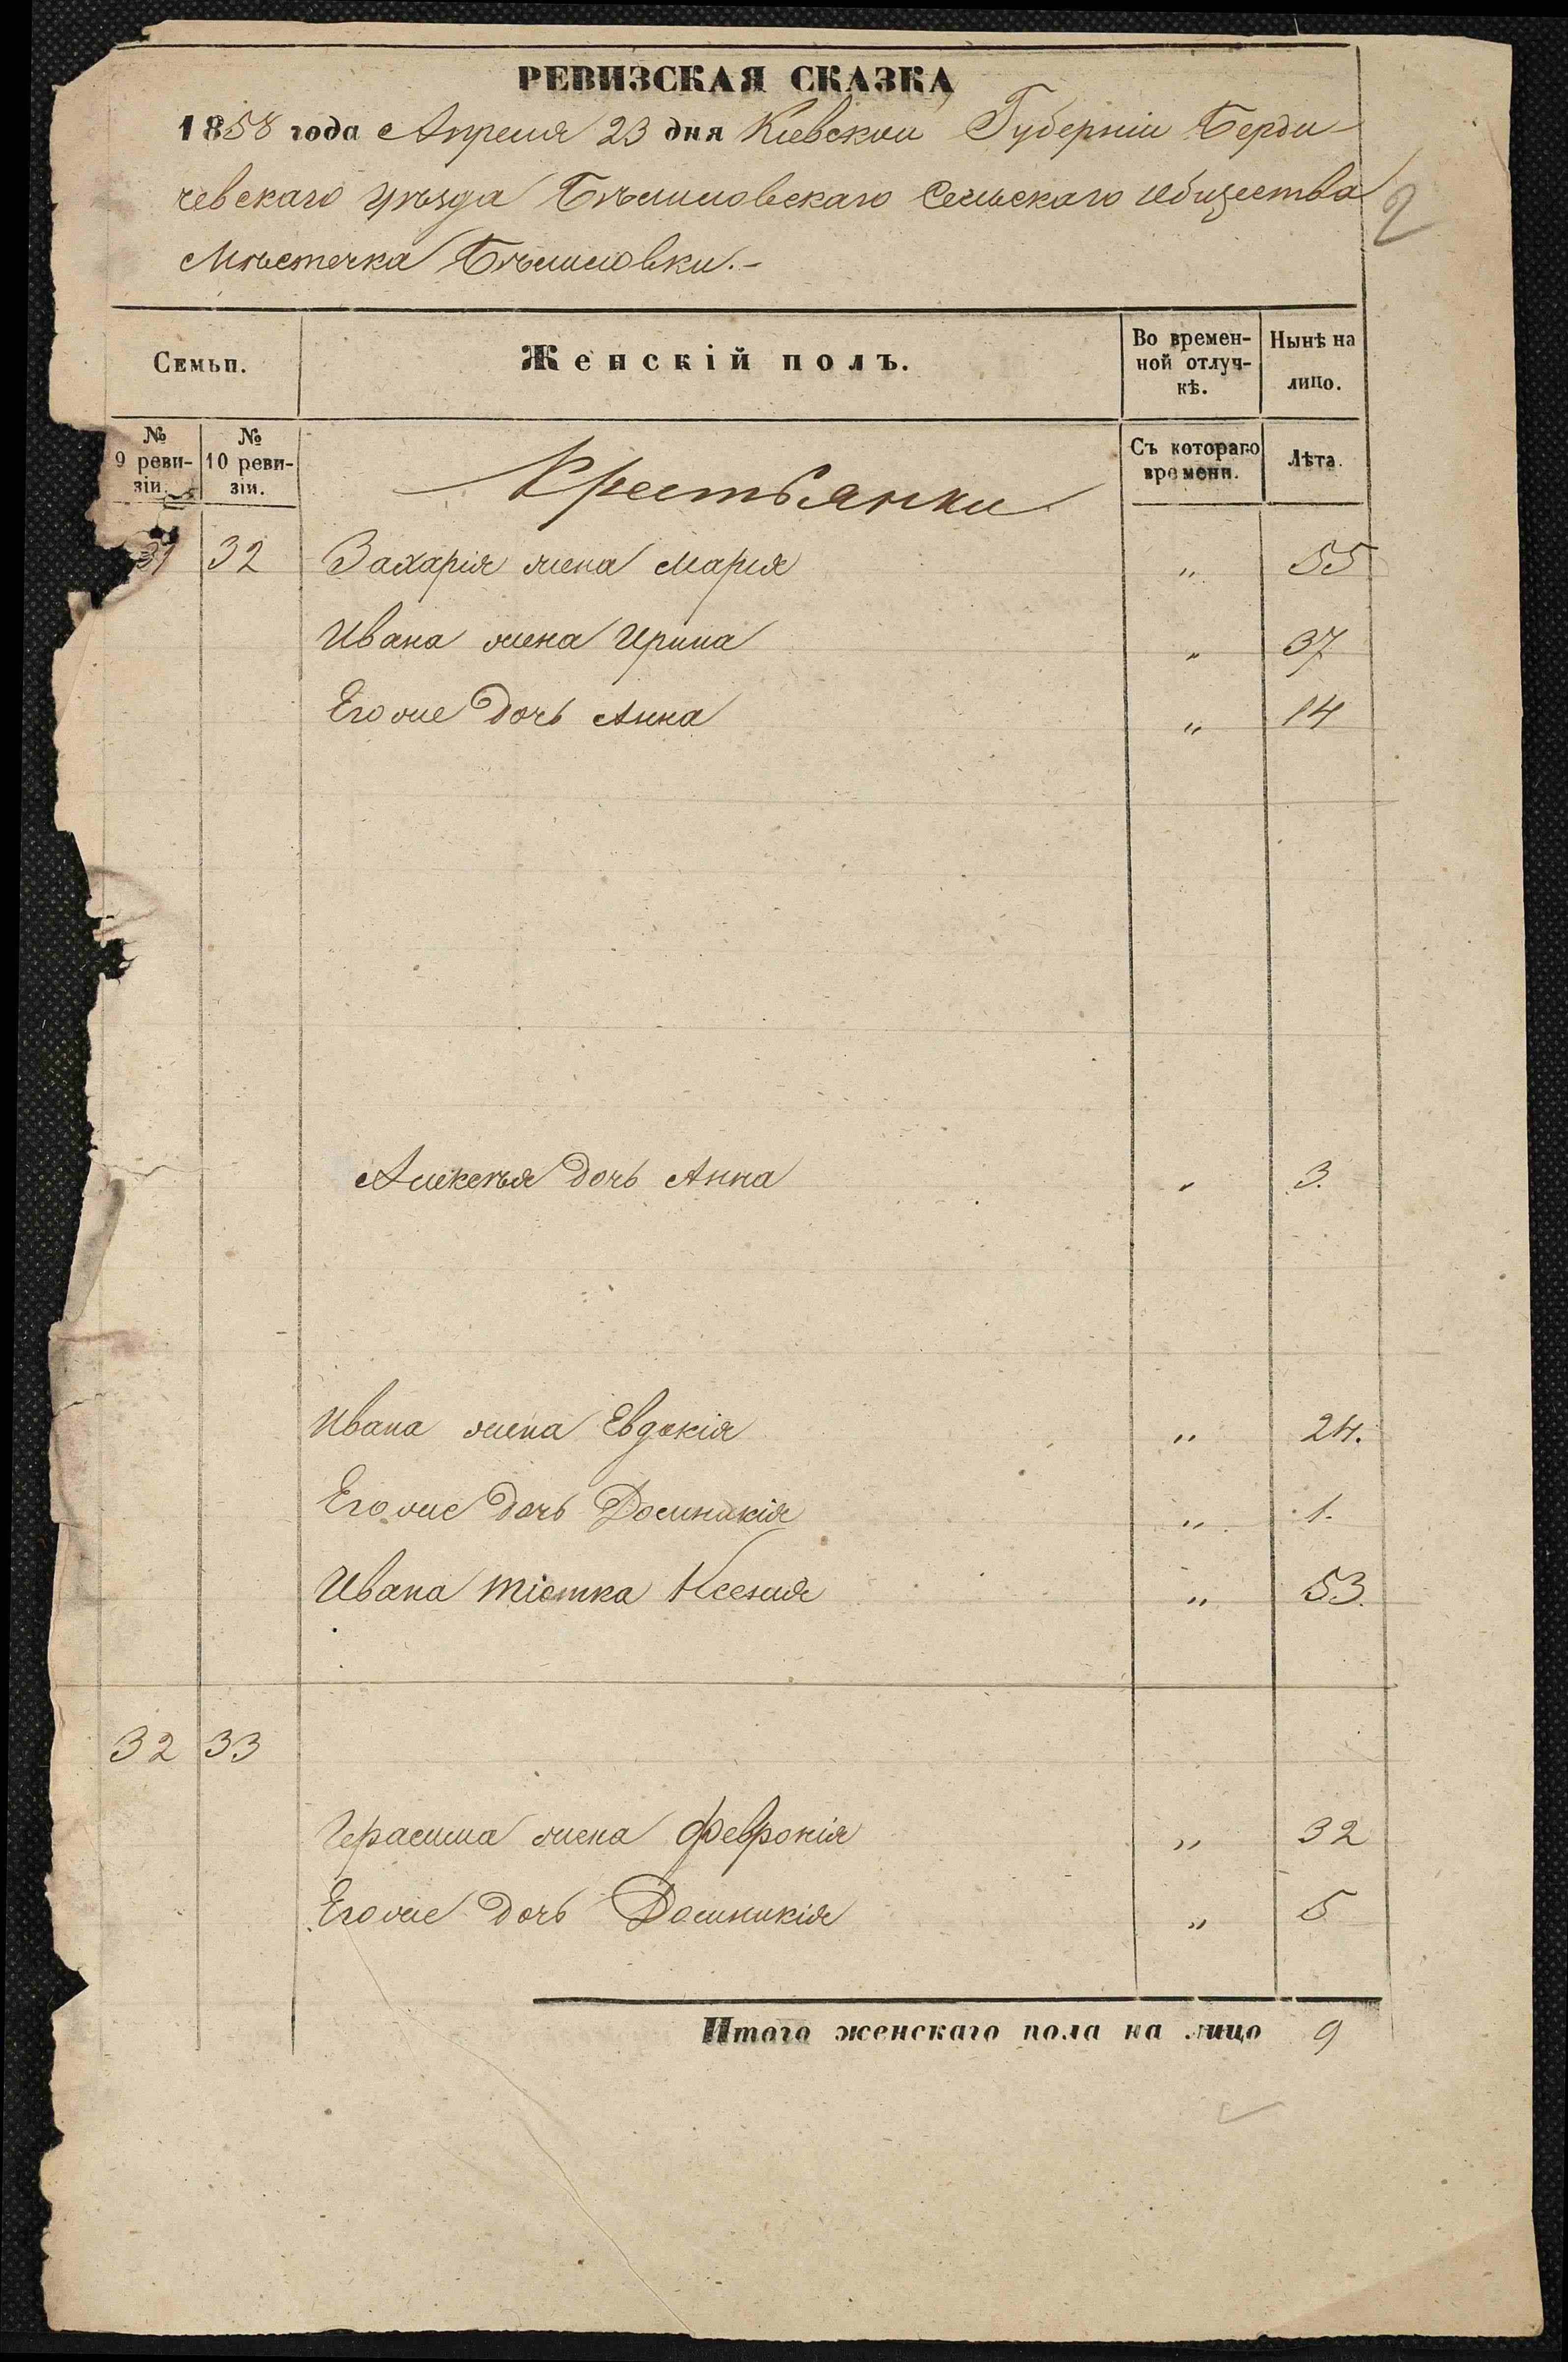 РЕВИЗСКАЯ СКАЗКА
1858 года Апреля 23 дня Кіевской Губерніи Берди-
чевскаго уѣзда Бѣлиловскаго Сельскаго Общества
Мѣстечка Бѣлиловки.-
2
Семьи. Женскій полъ. Во времен-ной отлуч-кѣ. Нынѣ на лицо.
№ 9 реви-зіи. № 10 реви-зіи. Крестьянки Съ котораго времени. Лѣта.
31 32 Захарія жена Марія " 55
Ивана жена Ирина " 37
Его же дочь Анна " 14
Алексѣя дочь Анна " 3.
Ивана жена Евдокія " 24.
Его же дочь Домникія " 1.
Ивана тіотка Ксенія " 53.
32 33
Герасима жена Февронія " 32
Его же дочь Домникія " 5
Итого женскаго пола на лицо 9